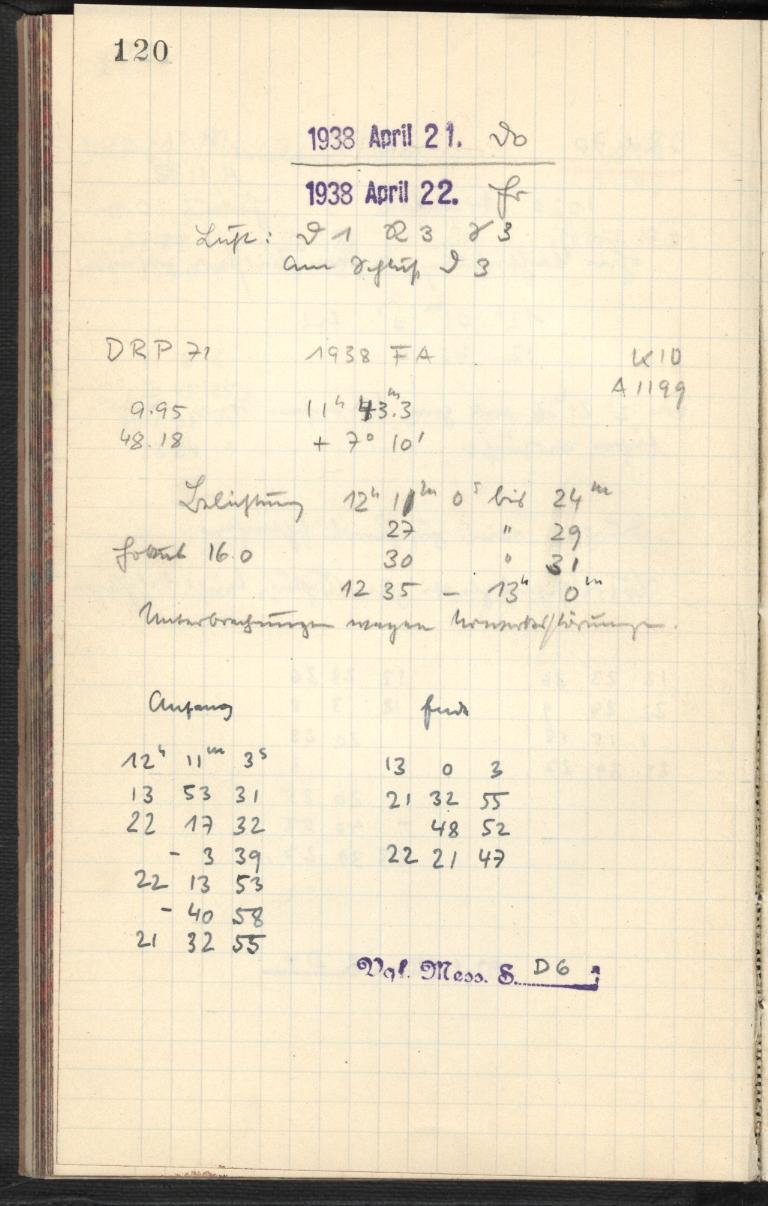 120
1938 April 21. Do
1938 April 22. Fr
Luft: D 1 R 3 S 3
am Schluß D 3
DRP 71 1938 FA K10
A1199
9.95 11ʰ 43ᵐ.3
48.18 + 7° 10'
Belichtung 12ʰ 11ᵐ 0ˢ bis 24ᵐ
27 " 29
Fokus 16.0 30 " 31
12 35 – 13ʰ 0ᵐ
Unterbrechungen wegen
Anfang Ende
12ʰ 11ᵐ 3ˢ 13 0 3
13 53 31 21 32 55
22 17 32 48 52
- 3 39 22 21 47
22 13 53
- 40 58
21 32 55
Vgl. Mess. S. D6